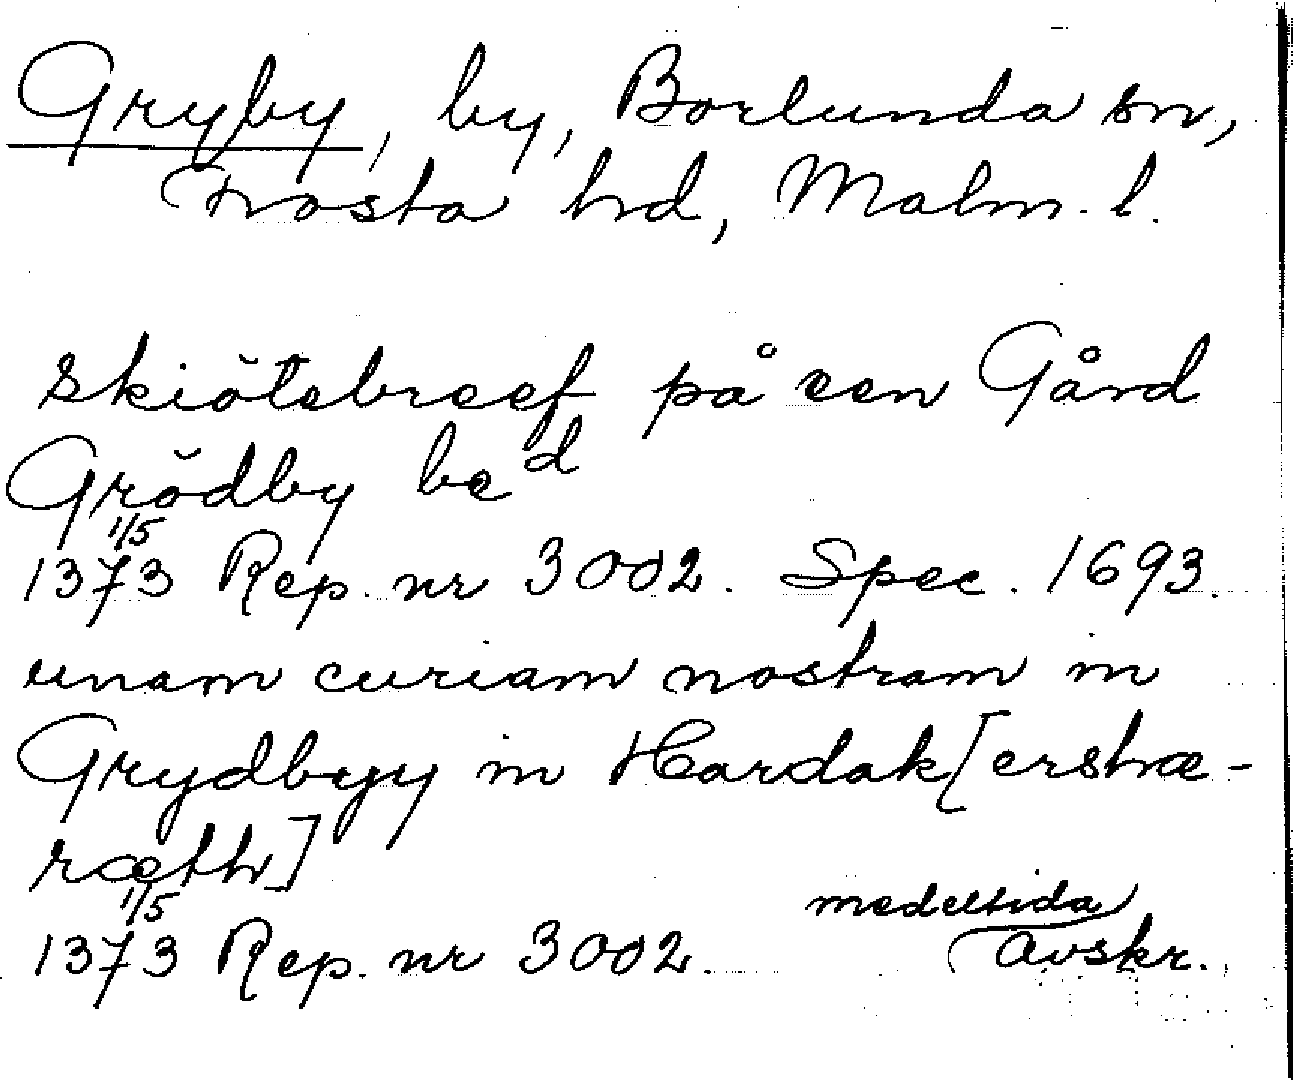 Gryby, by, Borlunda sn,
Frosta hd, Malm. l.
Skiötebreef på een Gård
Grödby be d
1/5
1373 Rep. nr 3002. Spec. 1693.
unam curiam nostram in
Grydbyy in Hardak[ershæ-
ræth]
1/5
medeltida
1373 Rep. nr 3002. avskr.